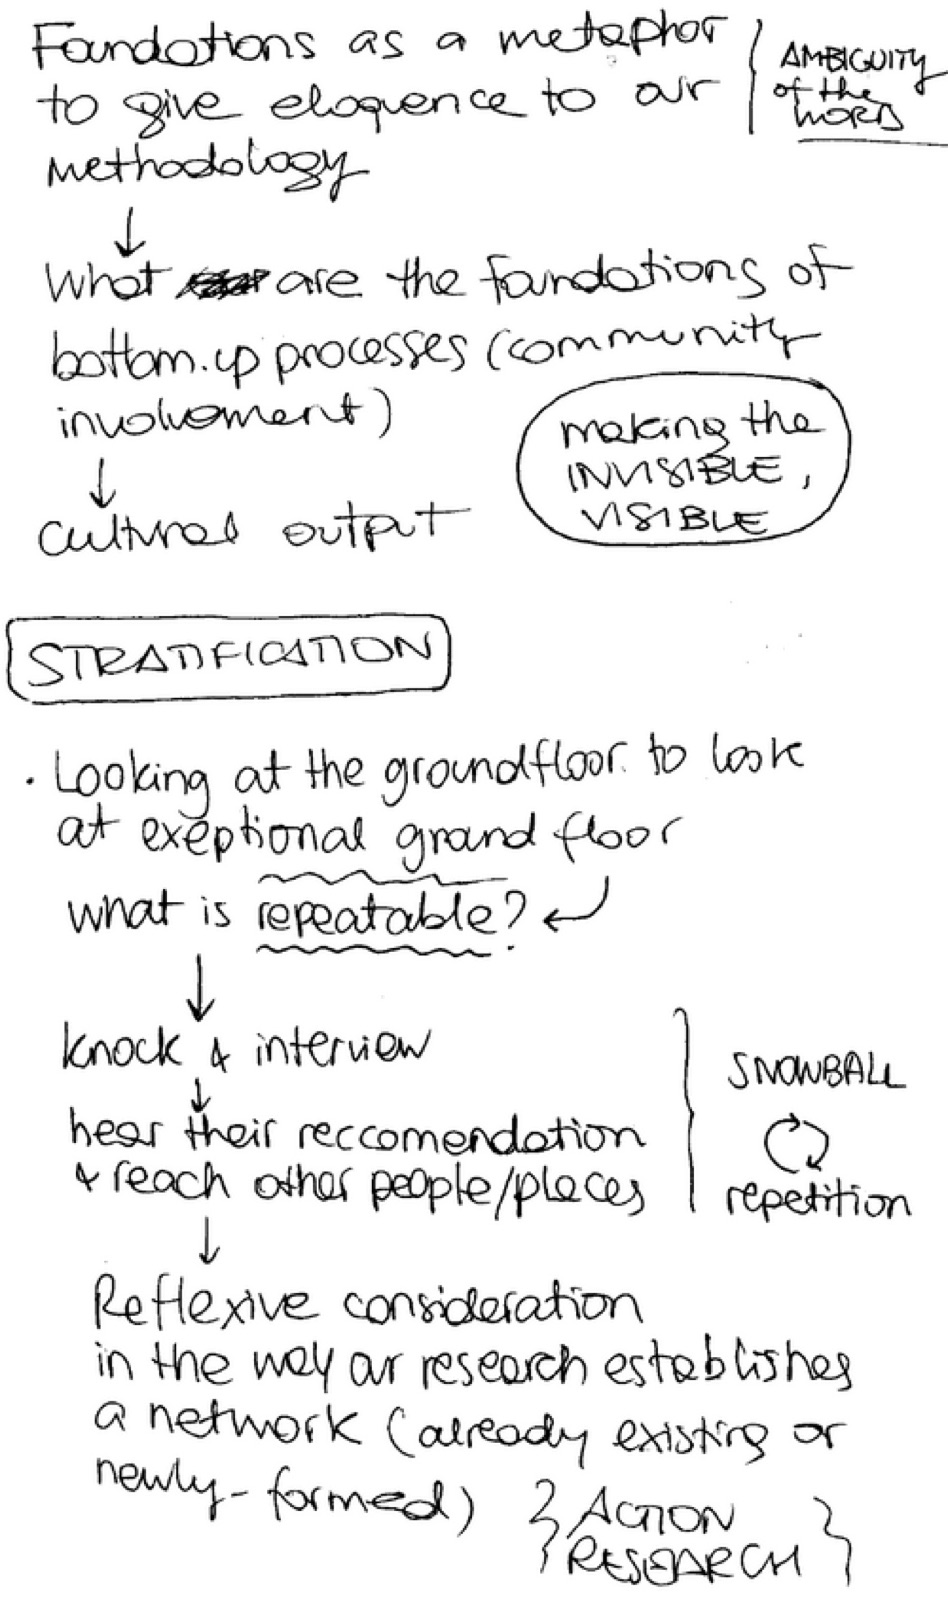 Foundations as a metaphor
to give eloquence to our
methodology
AMBIGUITY
of the
WORD
↓
What are the foundations of
bottom.up processes (community
involvement)
↓
cultural output
making the
INVISIBLE,
VISIBLE
STRATIFICATION
. Looking at the groundfloor to look
at exeptional ground floor
what is repeatable?
↓
knock & interview
↓
hear their reccomendation
& reach other people/places
SNOWBALL
repetition
↓
Reflexive consideration
in the way our research establishes
a network (already existing or
newly-formed)
} ACTION
RESEARCH }